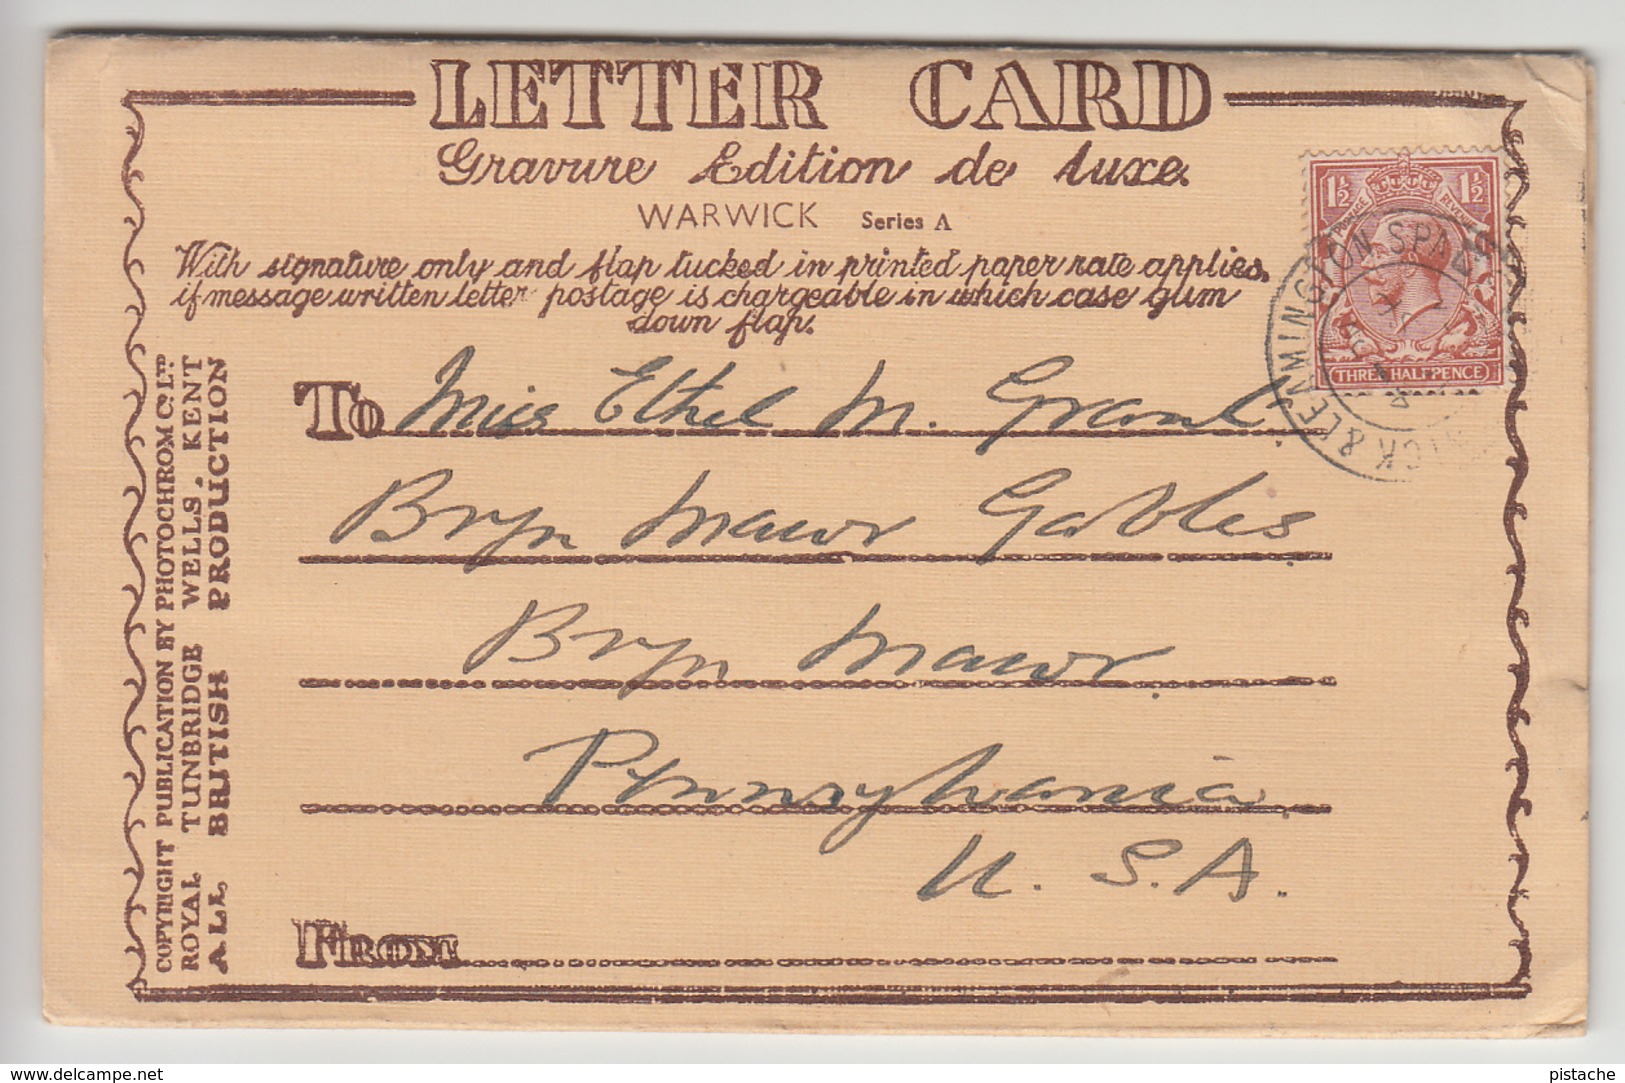 LETTER CARD
Gravure Edition de luxe
WARWICK Series A
With signature only and flap tucked in printed paper rate applies,
if message written letter postage is chargeable in which case gum
down flap.
1½ 1½
POSTAGE REVENUE
THREE HALFPENCE
& LEAMINGTON SPA
To Miss Ethel M. Grant
Bryn Mawr Gables
Bryn Mawr
Pennsylvania
U.S.A.
From
COPYRIGHT PUBLICATION BY PHOTOCHROM Co. LTD
ROYAL TUNBRIDGE WELLS. KENT
ALL BRITISH PRODUCTION
www.delcampe.net
pistache